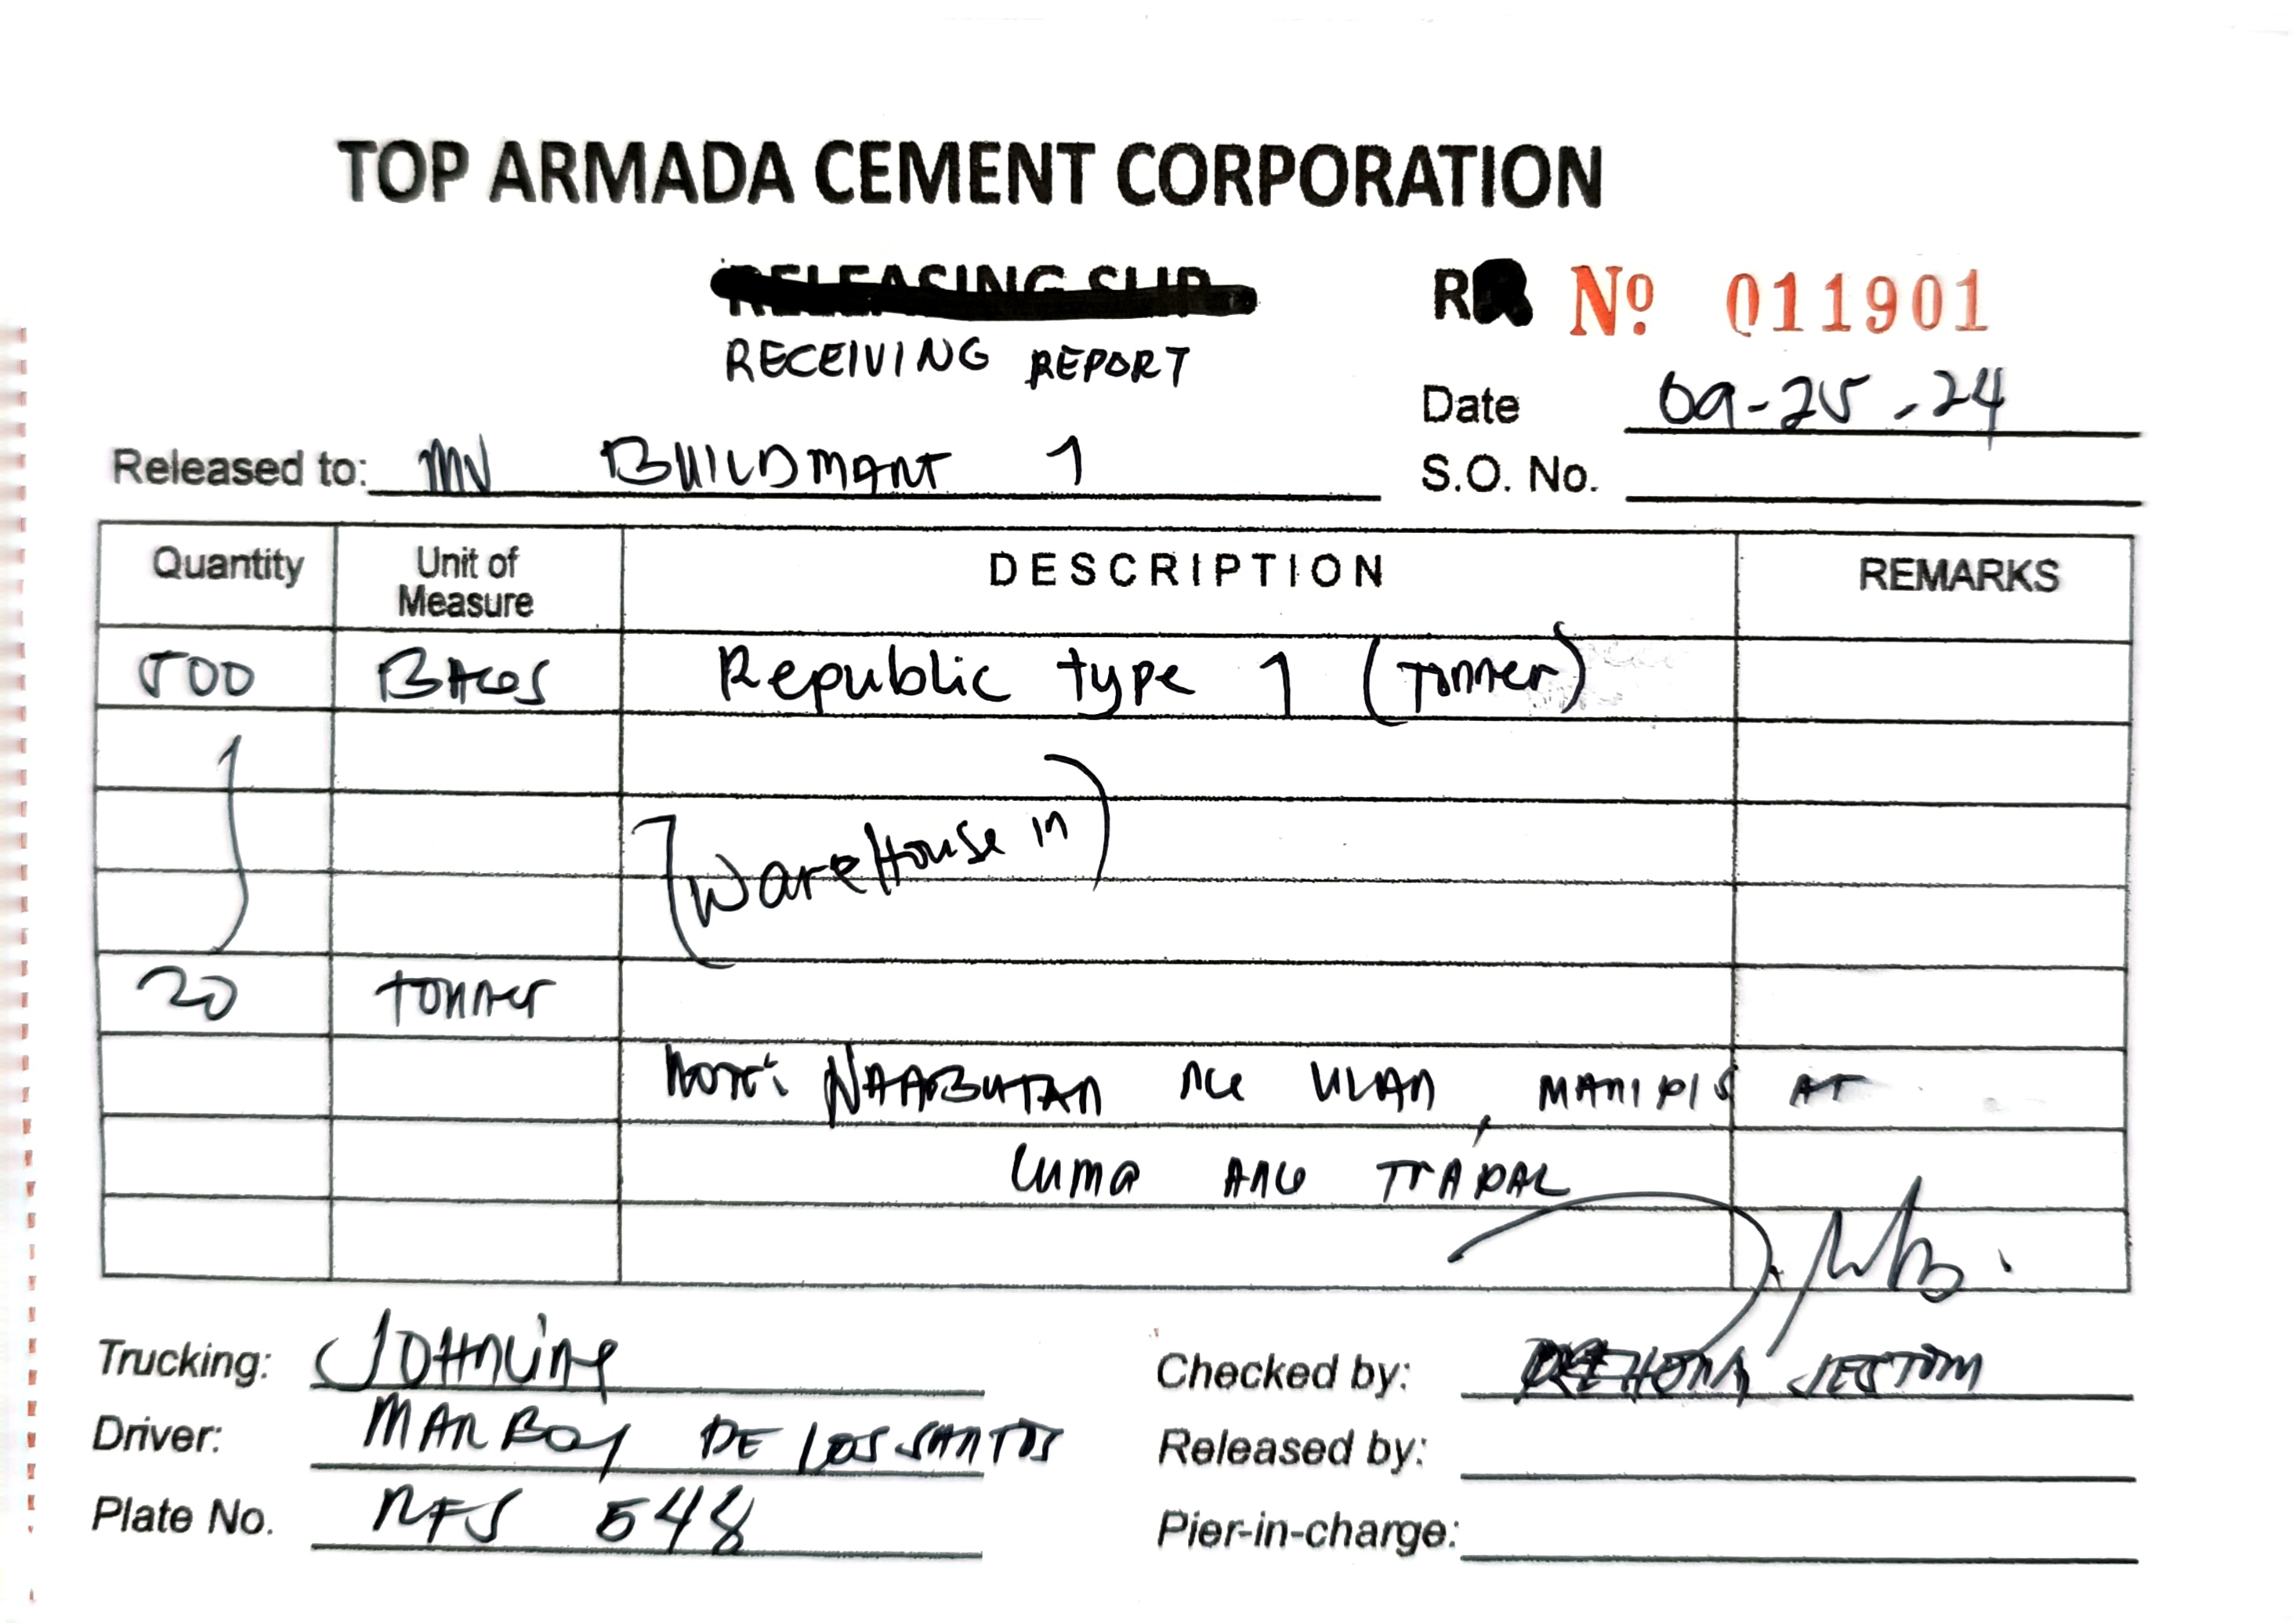 TOP ARMADA CEMENT CORPORATION
RELEASING SLIP
R Nº 011901
RECEIVING REPORT
Date 09-25-24
Released to: MV BUILDMART 1
S.O. No.
Quantity Unit of Measure DESCRIPTION REMARKS
500 BAGS Republic type 1 (Tonner)
(WareHouse in)
20 Tonner
NOTE: NAABUTAN NG ULAN, MANIPIS AT
LUMA ANG TRAPAL
Trucking: JOHNLINE
Checked by: JESTOM
Driver: MARBOY DE LOS SANTOS
Released by:
Plate No. RFS 548
Pier-in-charge: